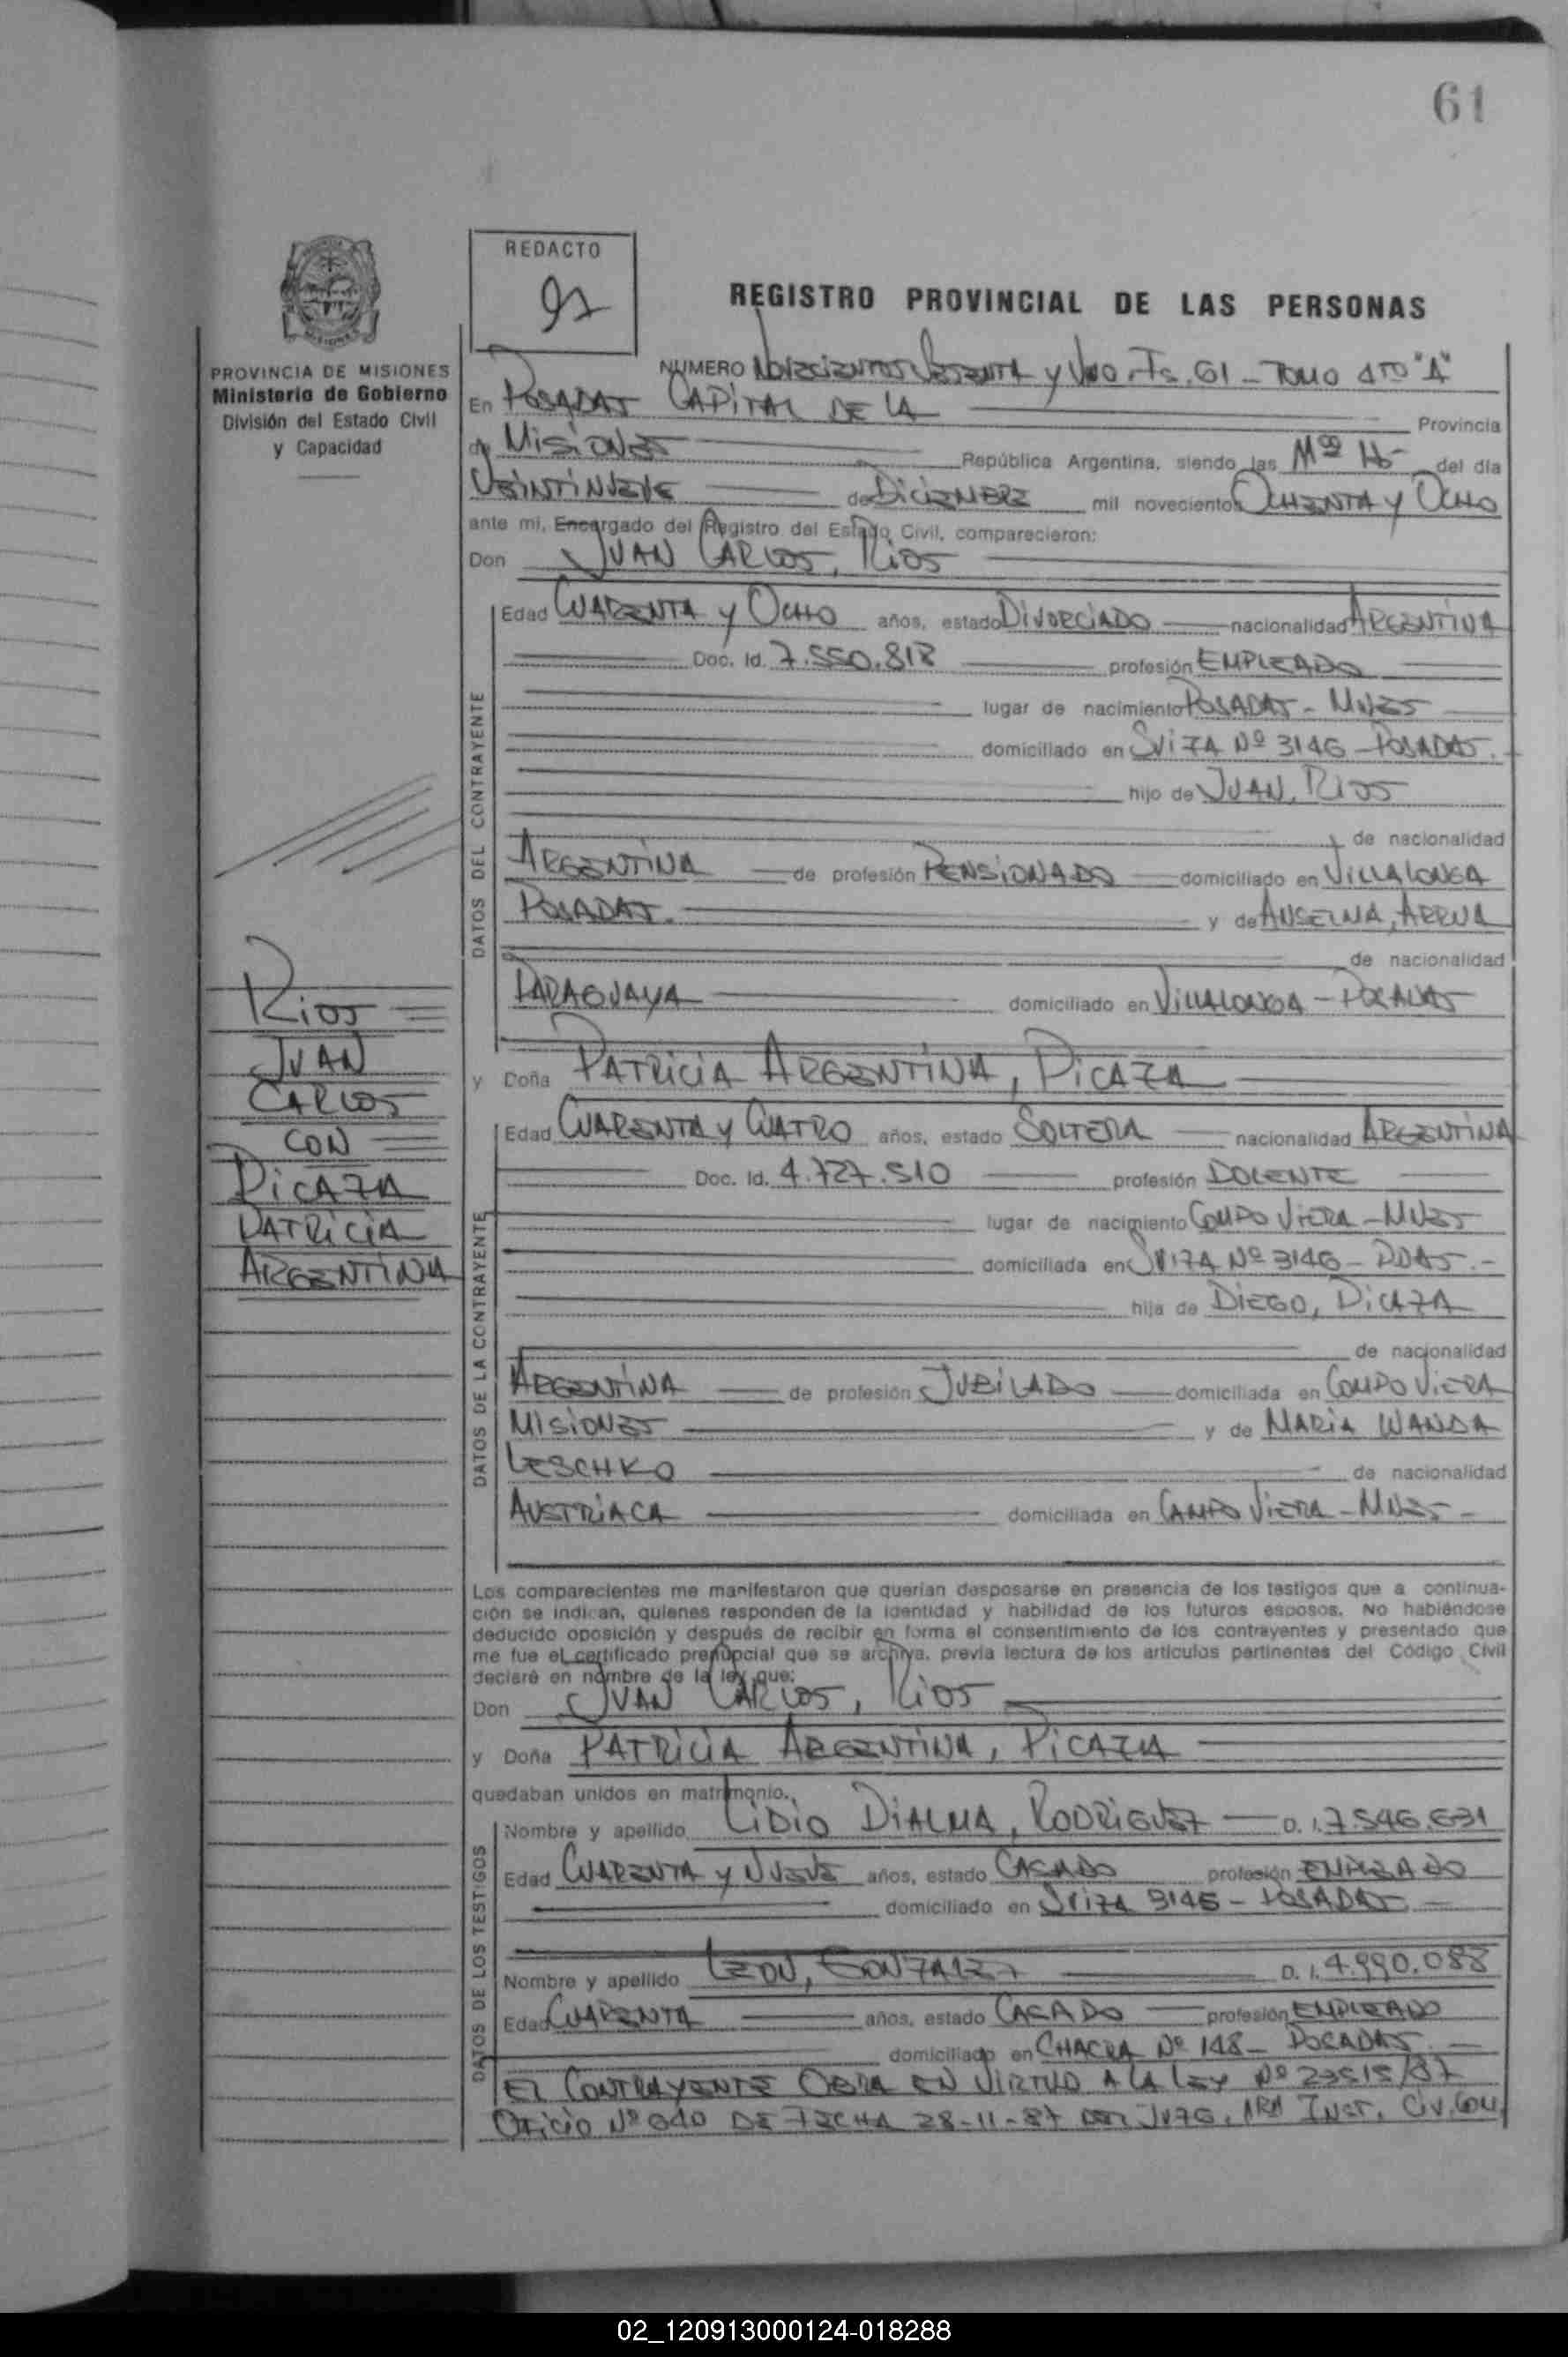 61
REDACTO
92
REGISTRO PROVINCIAL DE LAS PERSONAS
PROVINCIA DE MISIONES
Ministerio de Gobierno
División del Estado Civil
y Capacidad
NUMERO NOVECIENTOS SETENTA Y UNO. Fs. 61 - TOMO 4TO "A"
En POSADAS CAPITAL DE LA Provincia
de MISIONES República Argentina, siendo las Hs del día
VEINTINUEVE de DICIEMBRE mil novecientos OCHENTA Y OCHO
ante mi, Encargado del Registro del Estado Civil, comparecieron:
Don JUAN CARLOS, RIOS
DATOS DEL CONTRAYENTE
Edad CUARENTA Y OCHO años, estado DIVORCIADO nacionalidad ARGENTINA
Doc. Id. 7.550.818 profesión EMPLEADO
lugar de nacimiento POSADAS - MNES
domiciliado en SUIZA Nº 3146 - POSADAS.
hijo de JUAN, RIOS
de nacionalidad
ARGENTINA de profesión PENSIONADO domiciliado en VILLALONGA
POSADAS. y de ANSELMA, ARRUA
de nacionalidad
PARAGUAYA domiciliado en VILLALONGA - POSADAS
RIOS
JUAN
CARLOS
CON
PICAZA
PATRICIA
ARGENTINA
y Doña PATRICIA ARGENTINA, PICAZA
DATOS DE LA CONTRAYENTE
Edad CUARENTA Y CUATRO años, estado SOLTERA nacionalidad ARGENTINA
Doc. Id. 4.727.510 profesión DOCENTE
lugar de nacimiento CAMPO VIERA - MNES
domiciliada en SUIZA Nº 3146 - PDAS.-
hija de DIEGO, PICAZA
de nacionalidad
ARGENTINA de profesión JUBILADO domiciliada en CAMPO VIERA
MISIONES y de MARIA WANDA
LESCHKO de nacionalidad
AUSTRIACA domiciliada en CAMPO VIERA - MNES -
Los comparecientes me manifestaron que querían desposarse en presencia de los testigos que a continua-
ción se indican, quienes responden de la identidad y habilidad de los futuros esposos. No habiéndose
deducido oposición y después de recibir en forma el consentimiento de los contrayentes y presentado que
me fue el certificado prenupcial que se archiva, previa lectura de los artículos pertinentes del Código Civil
declaré en nombre de la ley que:
Don JUAN CARLOS, RIOS
y Doña PATRICIA ARGENTINA, PICAZA
quedaban unidos en matrimonio.
DATOS DE LOS TESTIGOS
Nombre y apellido LIDIO DIALMA, RODRIGUEZ D. I. 7.546.631
Edad CUARENTA Y NUEVE años, estado CASADO profesión EMPLEADO
domiciliado en SUIZA 3145 - POSADAS -
Nombre y apellido LEON, GONZALEZ D. I. 4.990.088
Edad CUARENTA años, estado CASADO profesión EMPLEADO
domiciliado en CHACRA Nº 148 - POSADAS. -
EL CONTRAYENTE OBRA EN VIRTUD A LA LEY Nº 23515/87
OFICIO Nº 640 DE FECHA 28-11-87 DEL JUZG. 1RA INST. CIV. COM.
02_120913000124-018288